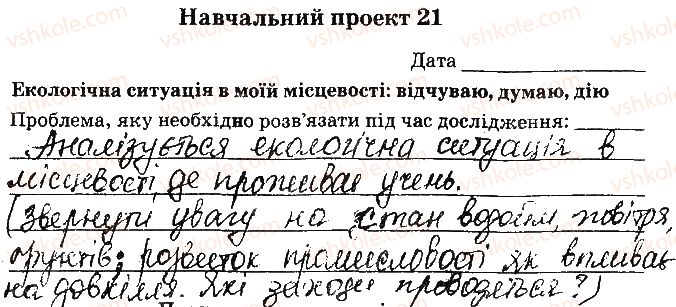 Навчальний проект 21
Дата
Екологічна ситуація в моїй місцевості: відчуваю, думаю, дію
Проблема, яку необхідно розв'язати під час дослідження:
Аналізується екологічна ситуація в
місцевості, де проживає учень.
(Звернути увагу на стан водойм, повітря,
ґрунтів; розвиток промисловості як впливає
на довкілля, які заходи проводяться?)